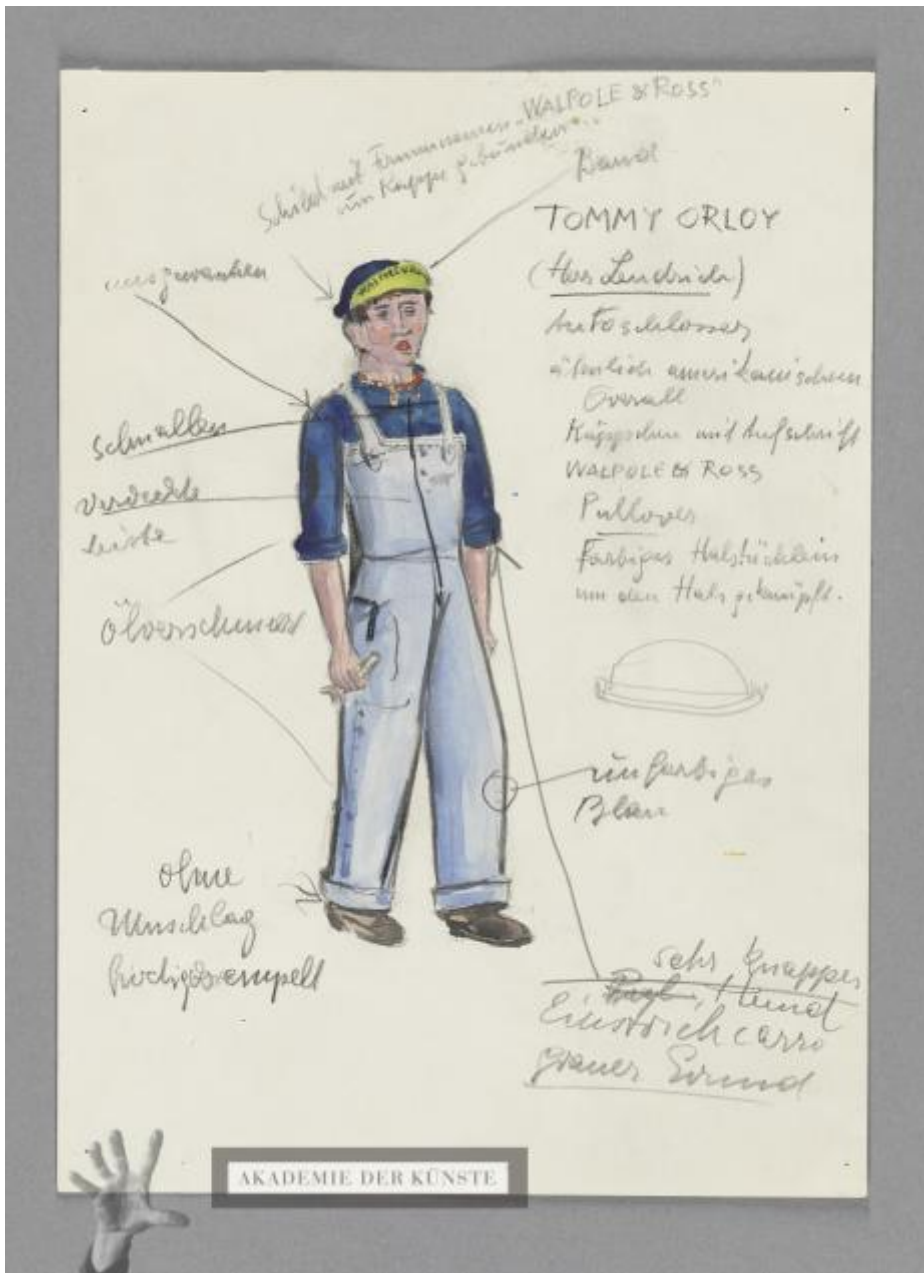 Schild mit Firmennamen „WALPOLE & ROSS"
um Kappe gebunden
Band
TOMMY ORLOY
(Herr Lendrich)
Autoschlosser
ähnlich amerikanischen
Overall
Käppchen mit Aufschrift
WALPOLE & ROSS
Pullover
Farbiges Halstüchlein
um den Hals geknüpft.
schnallen
Verdeckte
Leiste
Ölverschmiert
unfarbiges
Blau
ohne
Umschlag
sehr knappes
Hemd
carro
grauer Grund
AKADEMIE DER KÜNSTE